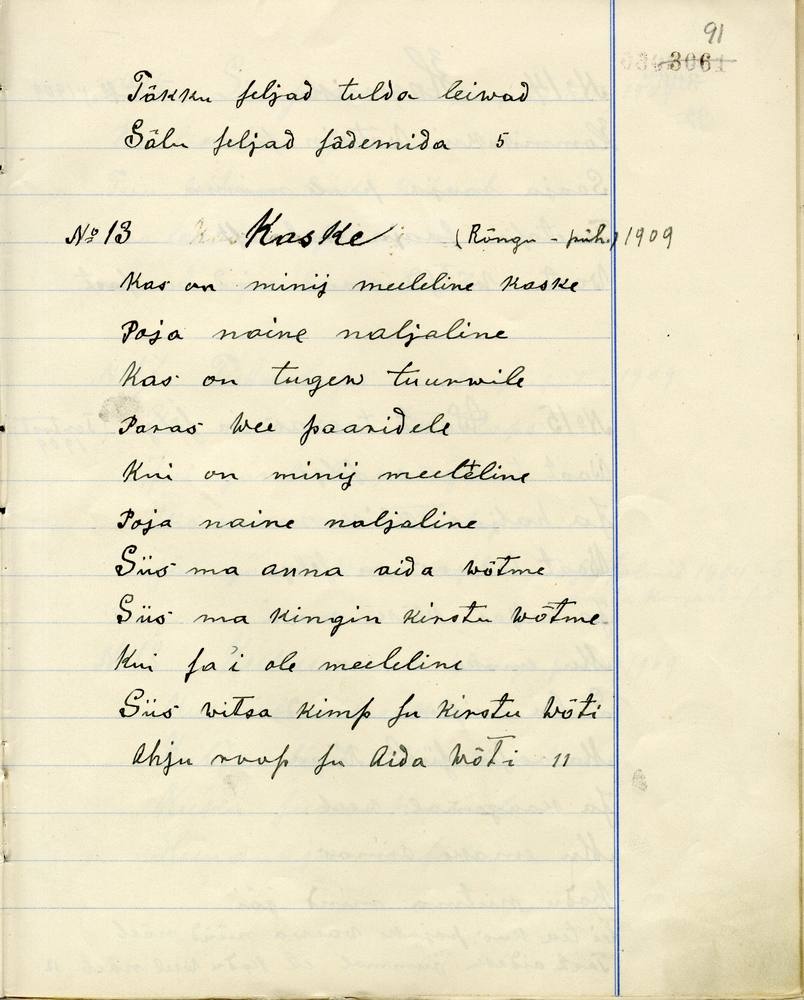 91
3061
Täkku seljad tulda leiwad
Sälu seljad sädemida 5
№ 13 Kaske (Rõngu - püh.) 1909
Kas on minij meeleline kaske
Poja naine naljaline
Kas on tugew tuurwile
Paras wee paaridele
Kui on minij meeleline
Poja naine naljaline
Siis ma anna aida wõtme
Siis ma kingin kirstu wõtme
Kui sa'i ole meeleline
Siis witsa kimp su kirstu wõti
Ahju roop su Aida wõti 11